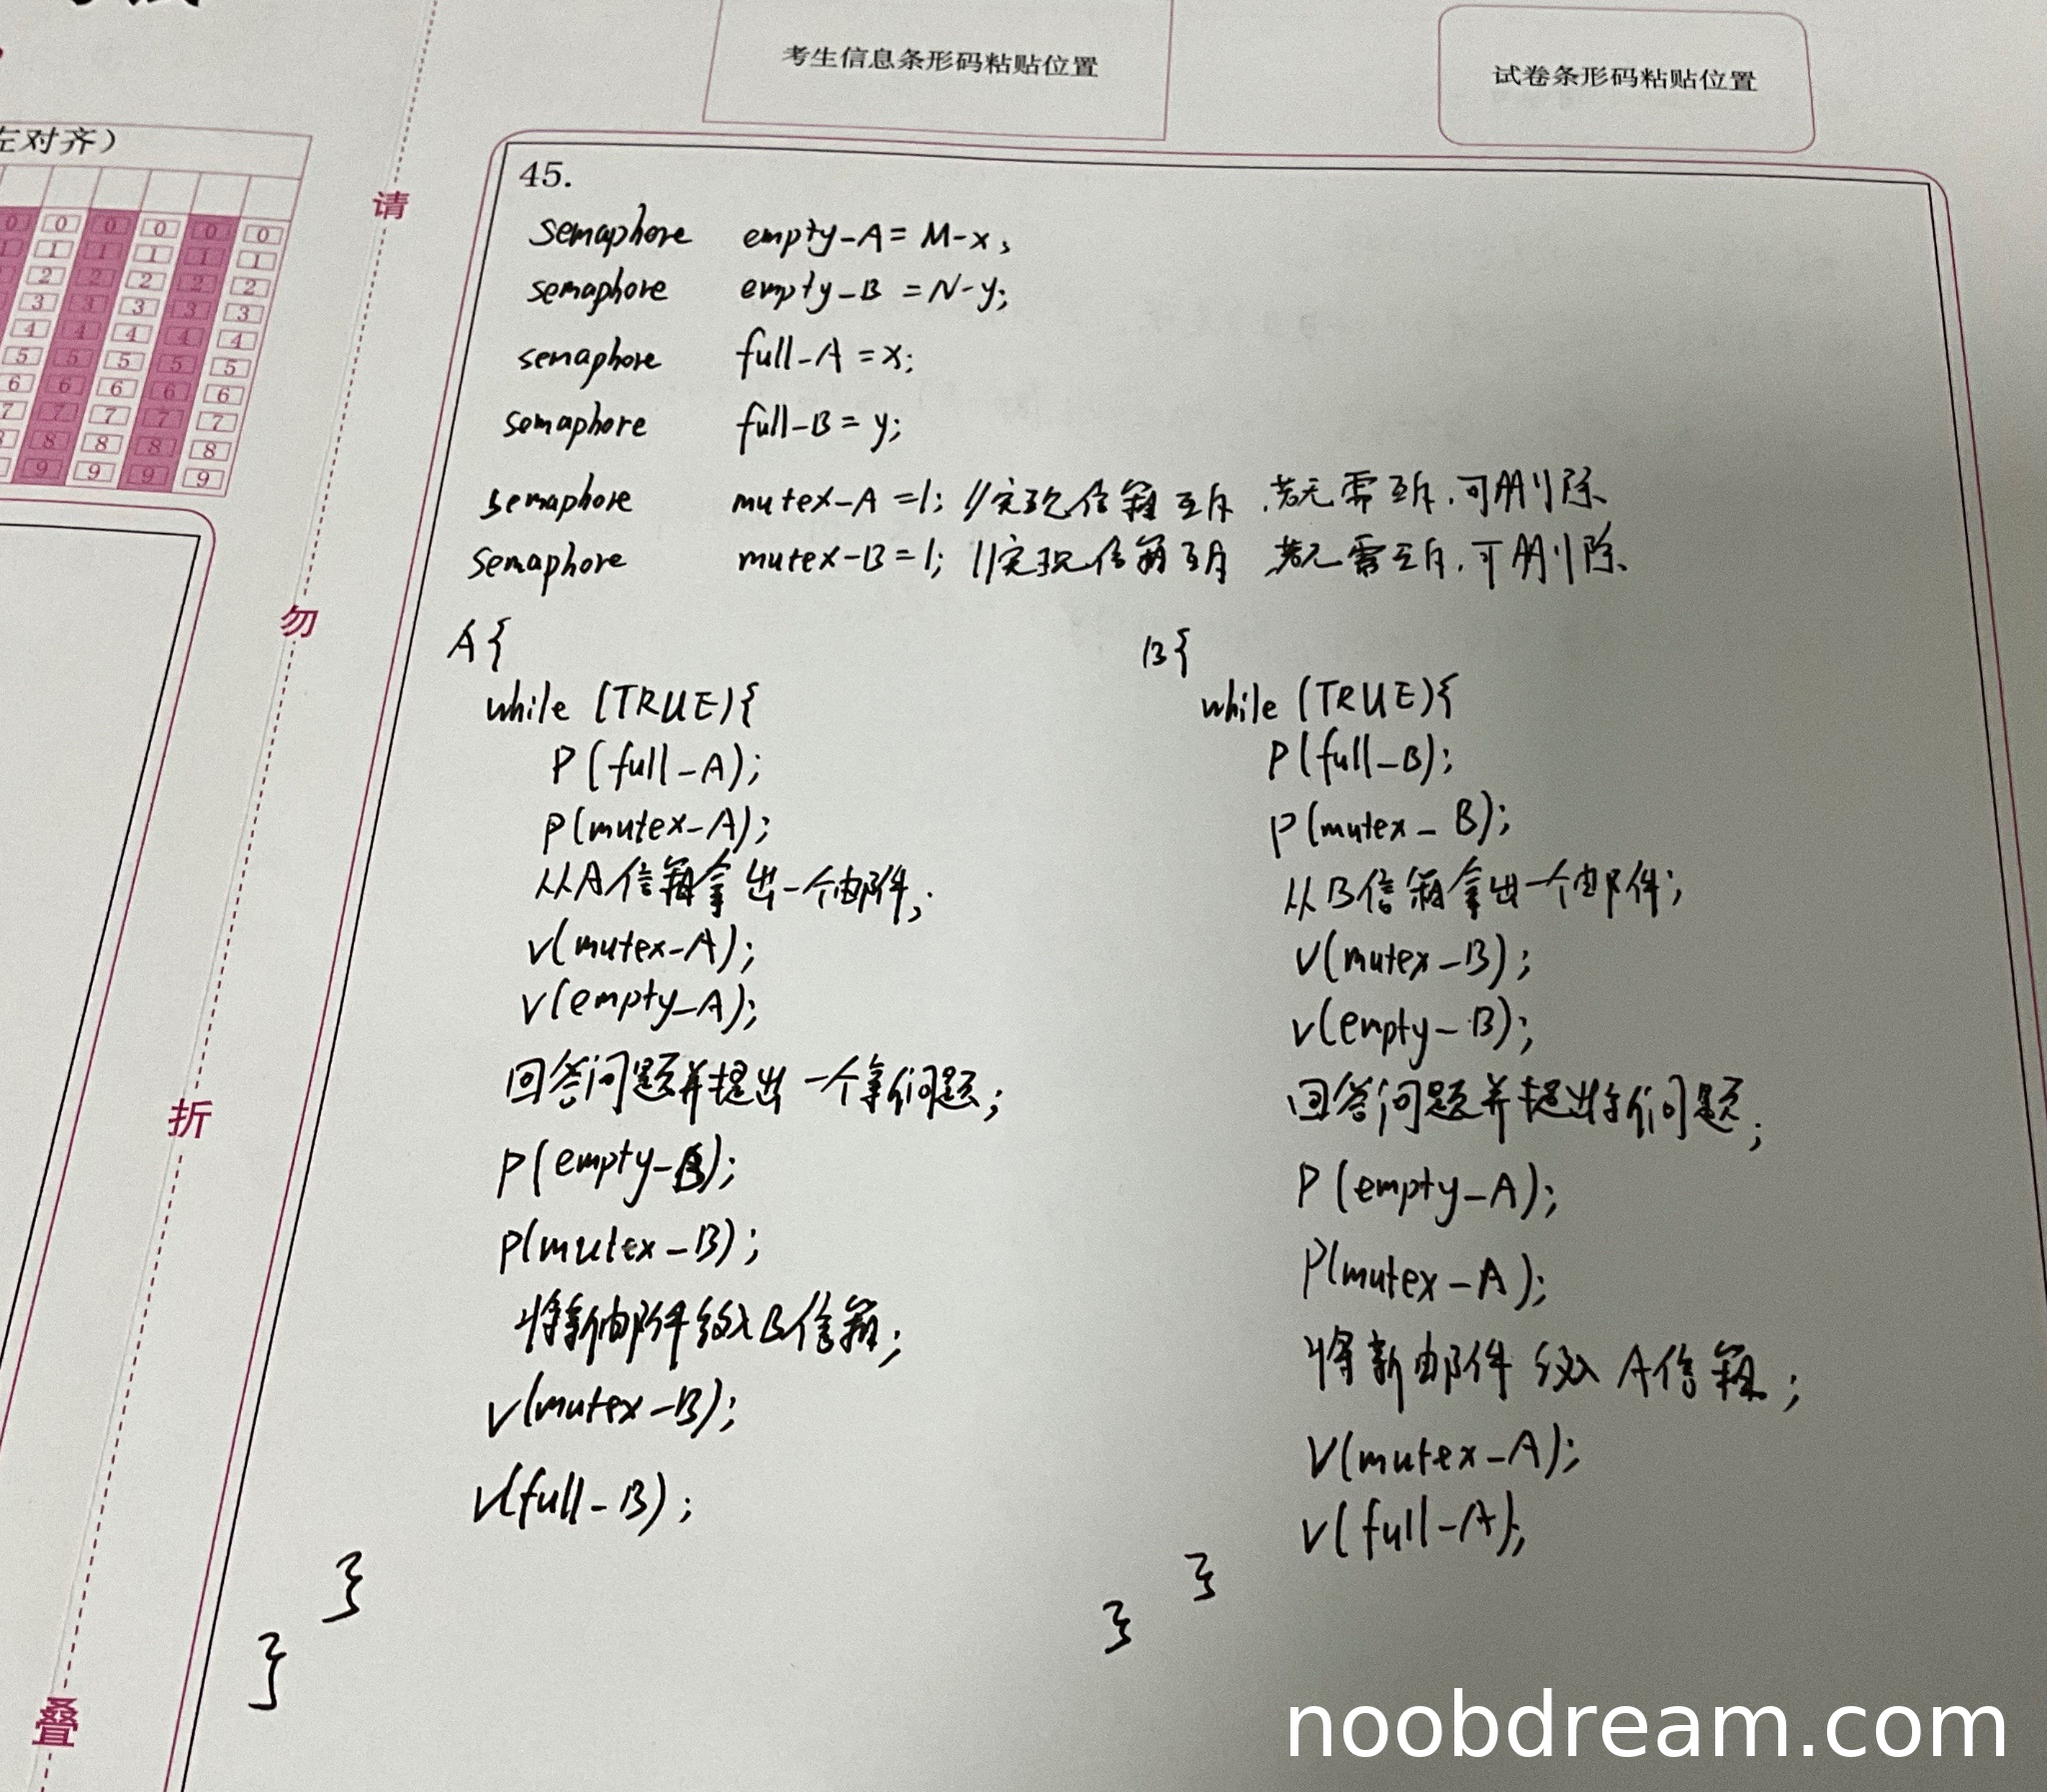 考生信息条形码粘贴位置
试卷条形码粘贴位置
左对齐）
0 0 0 0 0 0
1 1 1 1 1 1
2 2 2 2 2
3 3 3 3 3
4 4 4 4 4
5 5 5 5 5
6 6 6 6 6
7 7 7 7 7
8 8 8 8
9 9 9 9
请
勿
折
叠
45.
semaphore empty-A = M-x;
semaphore empty-B = N-y;
semaphore full-A = x;
semaphore full-B = y;
semaphore mutex-A = 1; //实现信箱互斥 若无需互斥,可删除
semaphore mutex-B = 1; //实现信箱互斥 若无需互斥,可删除
A{
while (TRUE){
P(full-A);
P(mutex-A);
从A信箱拿出一个邮件;
V(mutex-A);
V(empty-A);
回答问题并提出一个新问题;
P(empty-B);
P(mutex-B);
将新邮件放入B信箱;
V(mutex-B);
V(full-B);
}
}
B{
while (TRUE){
P(full-B);
P(mutex-B);
从B信箱拿出一个邮件;
V(mutex-B);
V(empty-B);
回答问题并提出新问题;
P(empty-A);
P(mutex-A);
将新邮件放入A信箱;
V(mutex-A);
V(full-A);
}
}
noobdream.com